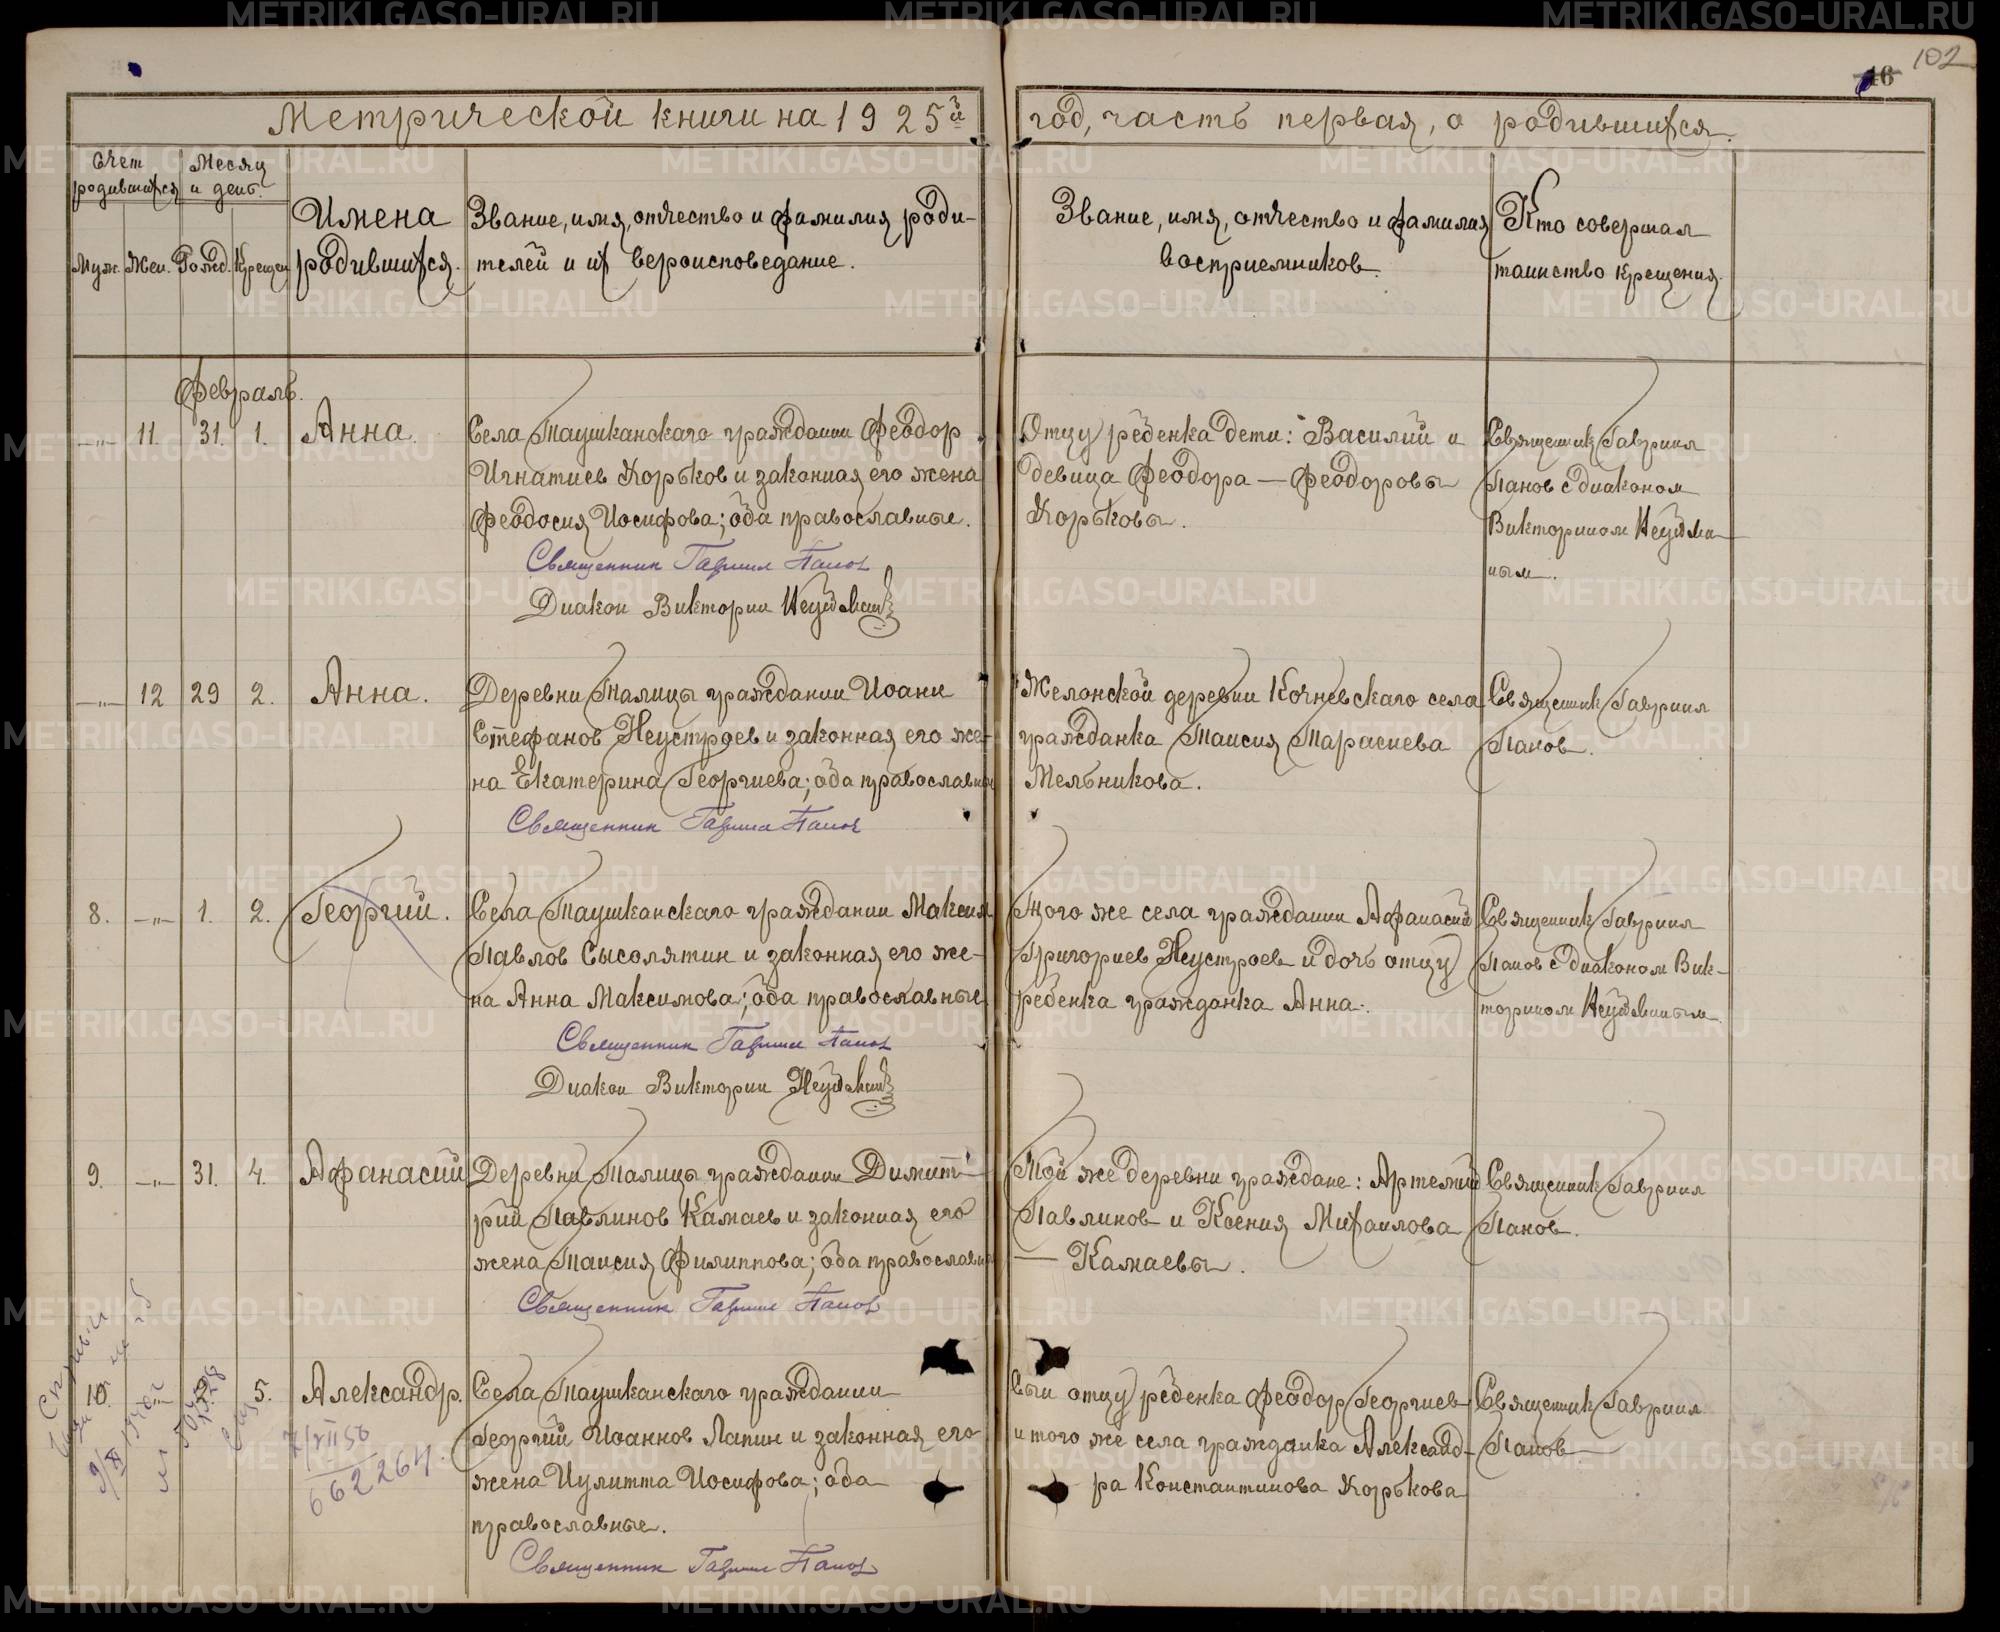 102
16
Метрической книги на 1925й год, часть первая, о родившихся.
Счет родившихся
Месяц и день.
Муж.
Жен.
Рожд.
Крещен.
Имена
родившихся.
Звание, имя, отчество и фамилия роди-
телей и их вероисповедание.
Звание, имя, отчество и фамилия
восприемников.
Кто совершал
таинство крещения.
Февраль.
—„— 11. 31. 1. Анна.
Села Таушканскаго гражданин Феодор
Игнатиев Хорьков и законная его жена
Феодосия Иосифова; оба православные.
Священник Гавриил Панов
Диакон Викторин
Отцу ребенка дети: Василий и
девица Феодора — Феодоровы
Хорьковы.
Священник Гавриил
Панов с диаконом
Викторином
ным.
—„— 12 29 2. Анна.
Деревни Талицы гражданин Иоанн
Стефанов Неустроев и законная его же-
на Екатерина Георгиева; оба православные
Священник Гавриил Панов
Желонской деревни Кочневскаго села
гражданка Таисия Тарасиева
Мельникова.
Священник Гавриил
Панов.
8. —„— 1. 2. Георгий.
Села Таушканскаго гражданин Максим
Павлов Сысолятин и законная его же-
на Анна Максимова; оба православные
Священник Гавриил Панов
Диакон Викторин
Того же села гражданин Афанасий
Григориев Неустроев и дочь отцу
ребенка гражданка Анна.
Священник Гавриил
Панов с диаконом Вик-
торином
9. —„— 31. 4. Афанасий
Деревни Талицы гражданин Димит-
рий Павлинов Камаев и законная его
жена Таисия Филиппова; оба православн
Священник Гавриил Панов
Той же деревни граждане: Артемий
Павлинов и Ксения Михаилова
— Камаевы.
Священник Гавриил
Панов.
10. 5. Александр.
7/VII 56
662264.
Села Таушканскаго гражданин
Георгий Иоаннов Лапин и законная его
жена Иулитта Иосифова; оба
православные.
Священник Гавриил Панов
Сын отцу ребенка Феодор Георгиев
и того же села гражданка Александ-
ра Константинова Хорькова
Священник Гавриил
Панов
METRIKI.GASO-URAL.RU